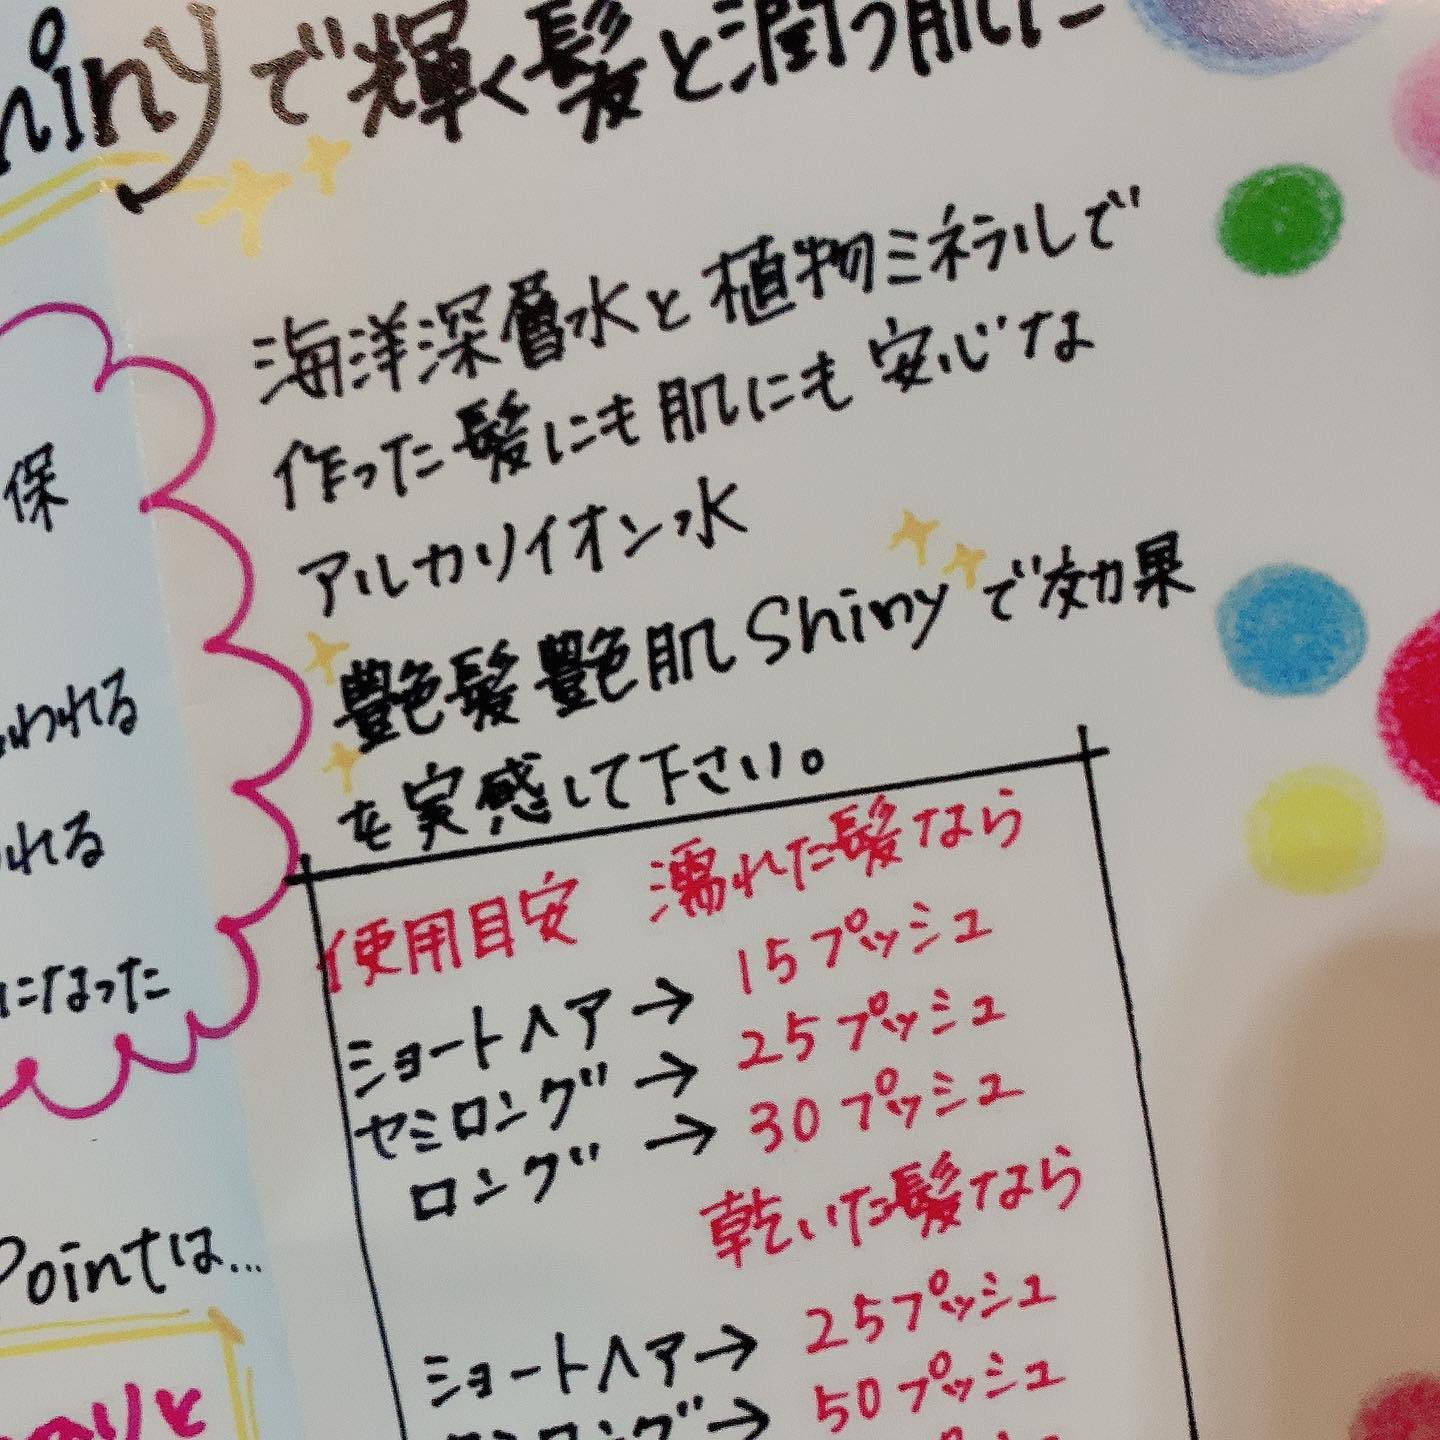 Shinyで輝く髪と潤う肌に
海洋深層水と植物ミネラルで
作った髪にも肌にも安心な
アルカリイオン水
艶髪艶肌Shinyで効果
を実感して下さい。
使用目安 濡れた髪なら
ショートヘア→15プッシュ
セミロング→25プッシュ
ロング→30プッシュ
乾いた髪なら
ショートヘア→25プッシュ
セミロング→50プッシュ
保
われる
れる
になった
Pointは…
りと